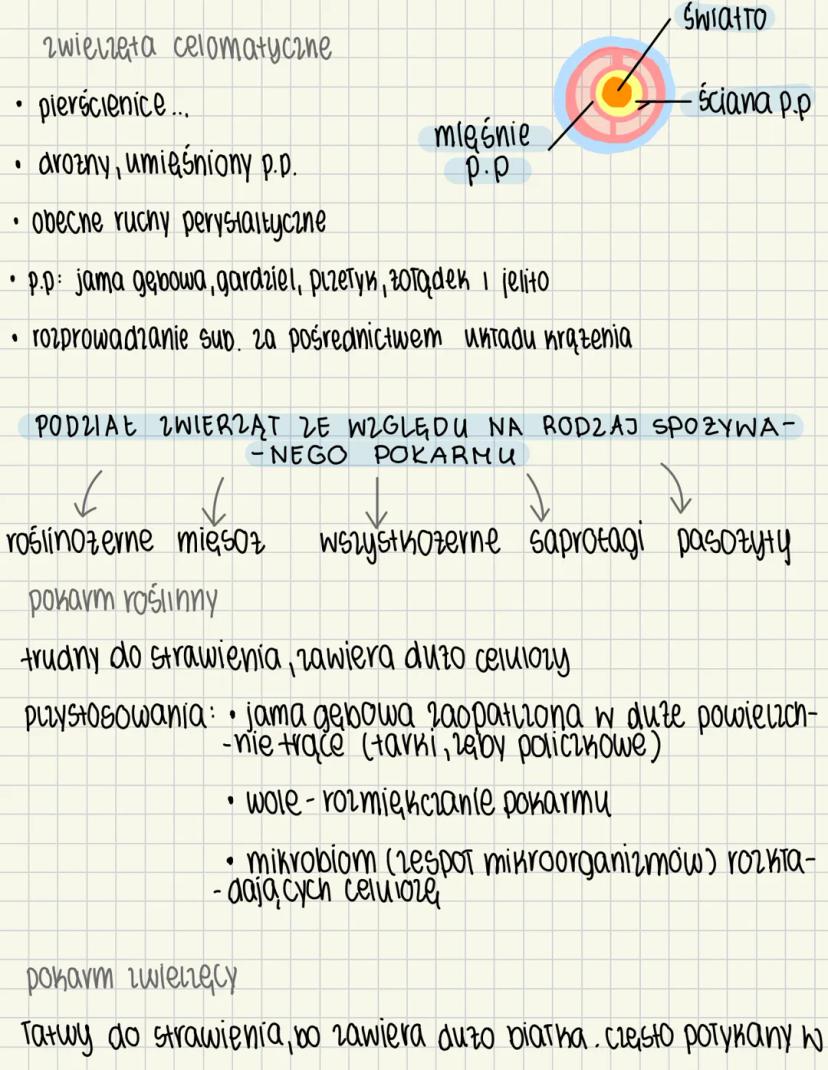 zwierzęta celomatyczne
światło
ściana p.p
mięśnie
p.p
• pierścienice...
• drożny, umięśniony p.p.
• obecne ruchy perystaltyczne
• p.p: jama gębowa, gardziel, przełyk, żołądek i jelito
• rozprowadzanie sub. za pośrednictwem układu krążenia
PODZIAŁ ZWIERZĄT ZE WZGLĘDU NA RODZAJ SPOŻYWA-
-NEGO POKARMU
roślinożerne mięsoż wszystkożerne saprofagi pasożyty
pokarm roślinny
trudny do strawienia, zawiera dużo celulozy
przystosowania: • jama gębowa zaopatrzona w duże powierzch-
-nie trące (tarki, zęby policzkowe)
• wole - rozmiękczanie pokarmu
• mikrobiom (zespół mikroorganizmów) rozkła-
-dających celulozę
pokarm zwierzęcy
łatwy do strawienia, bo zawiera dużo białka. często połykany w